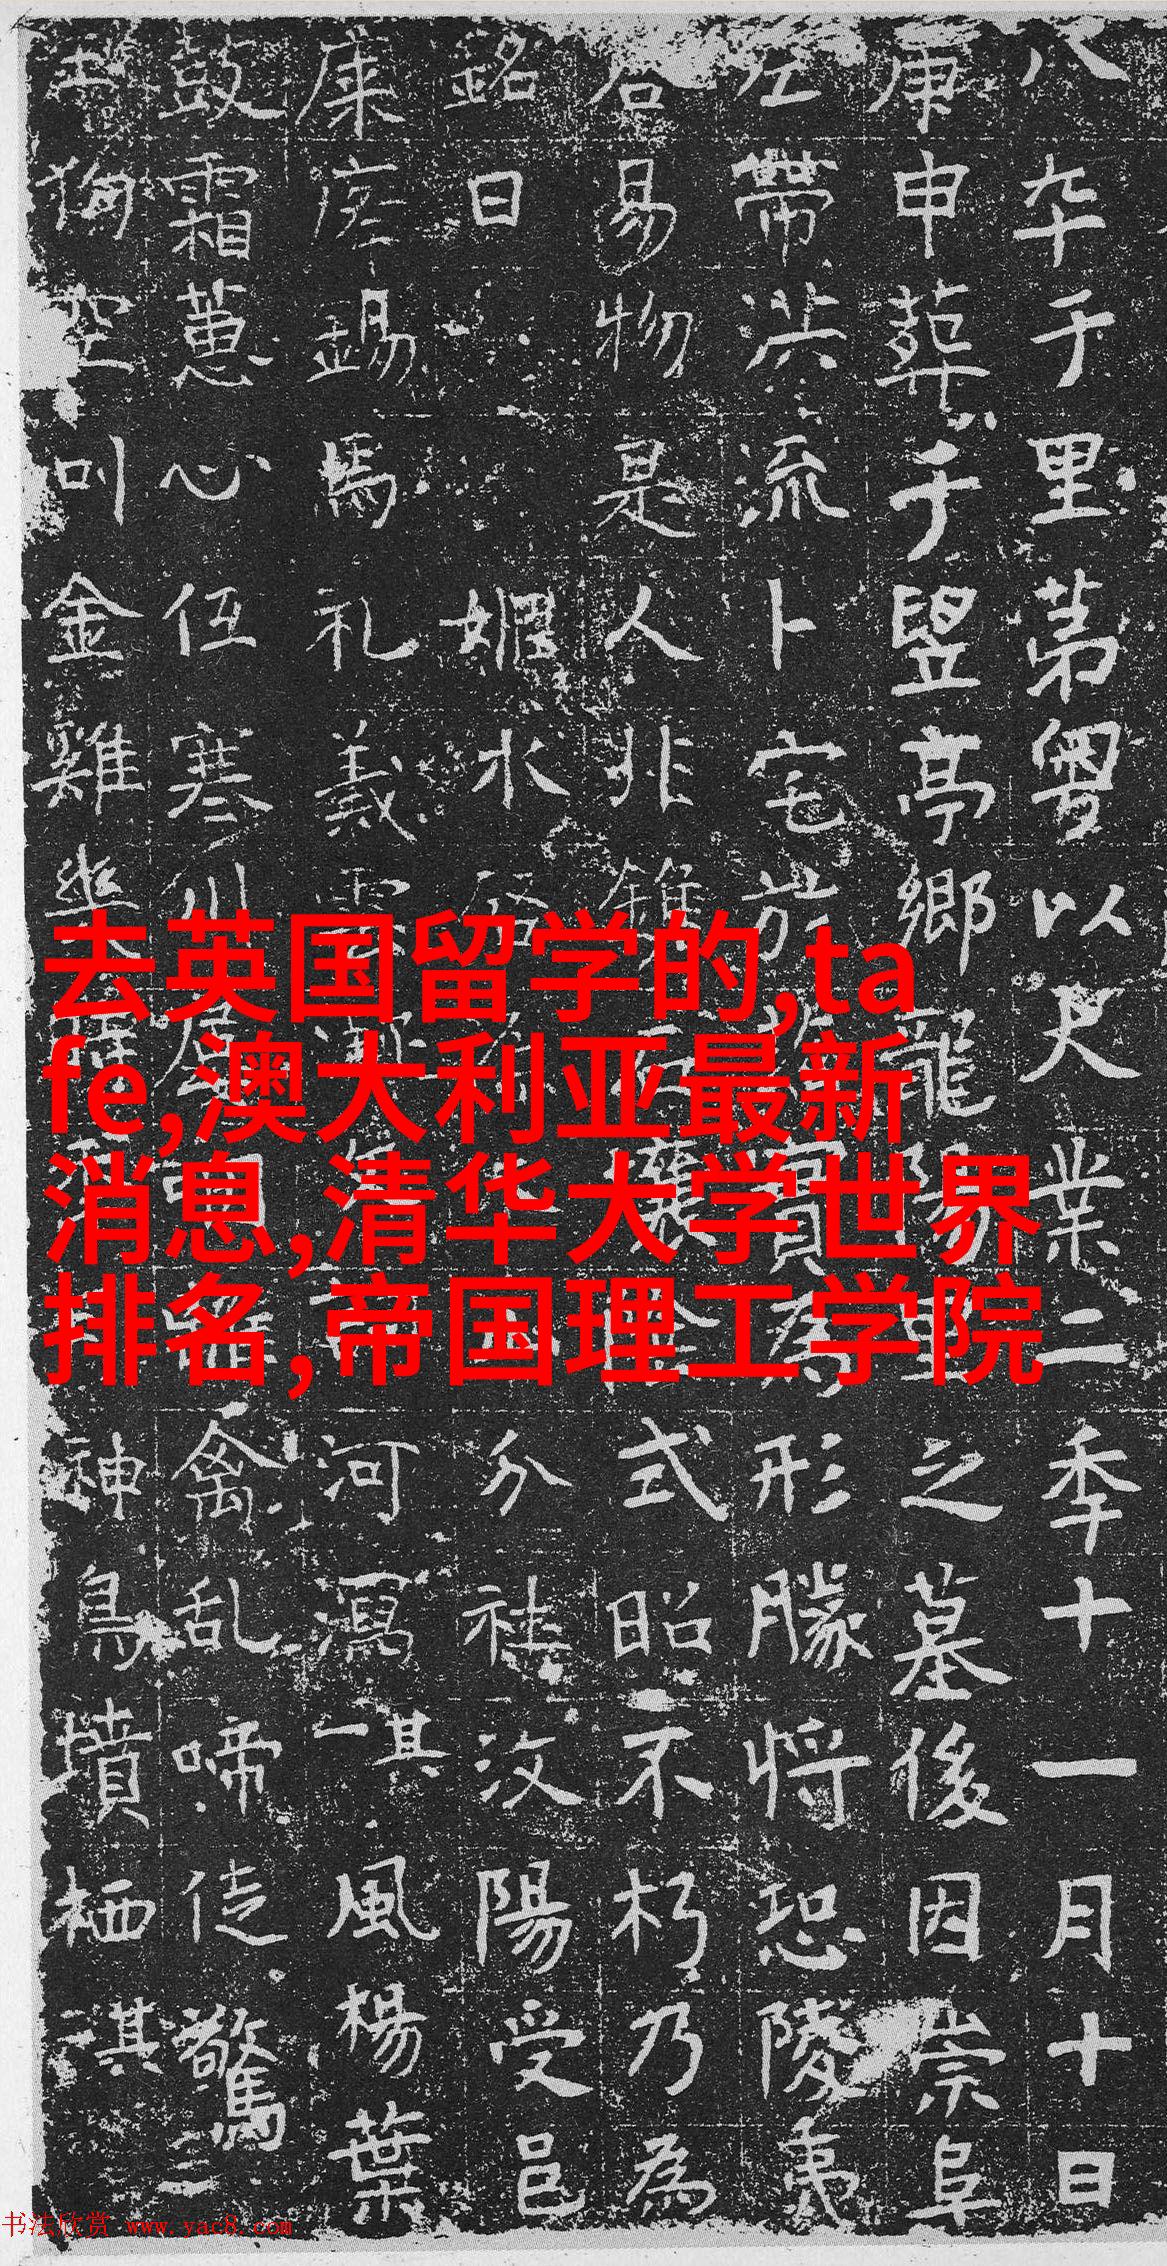 八
年于里第粤以大業二年十一月十日
庚申葬于竪亭鄉龍陽里之墓後因崇阜
左帶洪流卜宅
形勝將恐陵夷
易物是人非
式昭不朽乃為
銘曰
嬀水
分社汶陽受邑
錫馬礼義
河瀉一其風楊葉
鼓霜蕙心伍寒
禽乱啼徒驚三
空叫金雞
神鳥墳栖其
去英国留学的,ta
fe,澳大利亚最新
消息,清华大学世界
排名,帝国理工学院
书法欣赏 www.yac8.com